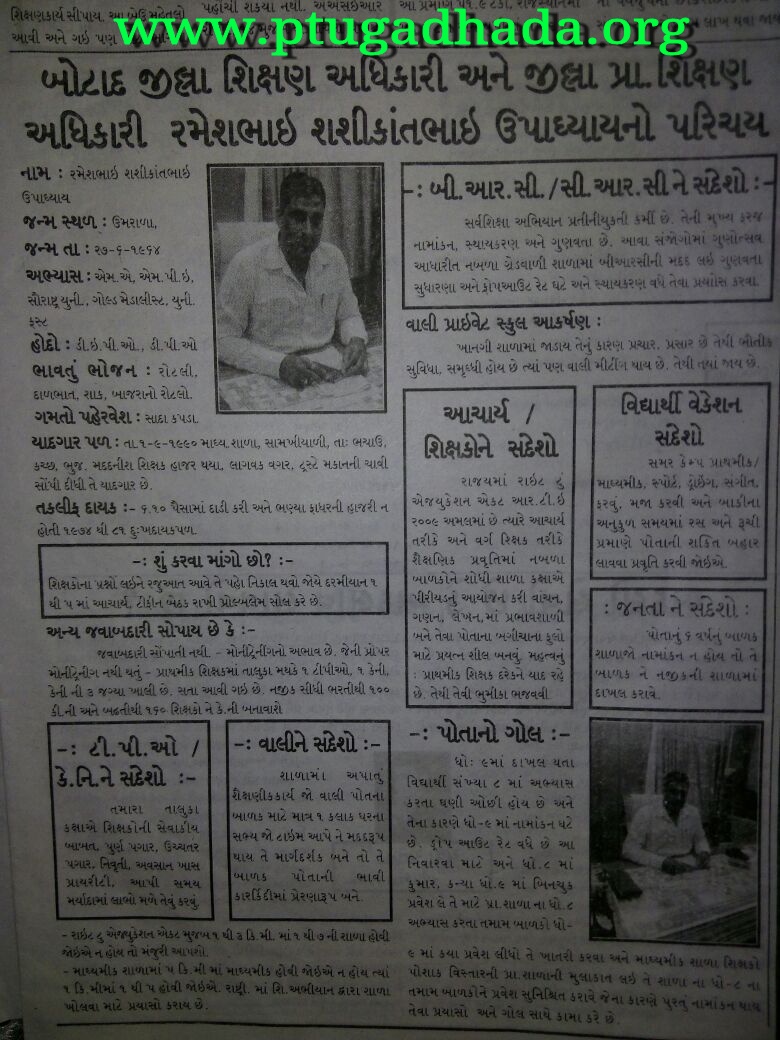 શિક્ષણકાર્ય સીપાય. આ બેઉ મહત્વો
આવી અને ગઇ પણ
પહોંચી શકયા નથી.
www.ptugadhada.org
બોટાદ જીલ્લા શિક્ષણ અધિકારી અને જીલ્લા પ્રા.શિક્ષણ
અધિકારી રમેશભાઇ શશીકાંતભાઇ ઉપાધ્યાયનો પરિચય
નામ : રમેશભાઇ શશીકાંતભાઇ
ઉપાધ્યાય
જન્મ સ્થળ : ઉમરાળા,
જન્મ તા : ૨૭-૬-૧૯૬૪
અભ્યાસ : એમ.એ, એમ.પી.ઇ,
સૌરાષ્ટ્ર યુની., ગોલ્ડ મેડાલીસ્ટ, યુની.
ફસ્ટ
હોદો : ડી.ઇ.પી.ઓ., ડી.પી.ઓ
ભાવતું ભોજન : રોટલી,
દાળભાત, સાક, બાજરાનો રોટલો.
ગમતો પહેરવેશ : સાદા કપડા.
યાદગાર પળ : તા.૧-૯-૧૯૯૦ માધ્ય.શાળા, સામખીયાળી, તાઃ ભચાઉ,
કચ્છ, ભુજ. મદદનીશ શિક્ષક હાજર થયા, લાગવક વગર, ટ્રસ્ટે મકાનની ચાવી
સોંપી દીધી તે યાદગાર છે.
તકલીફ દાયક :- ૬.૧૦ પૈસામાં દાડી કરી અને ભણ્યા ફાધરની હાજરી ન
હોતી ૧૯૭૪ થી ૮૧ દુઃખદાયકપળ.
-: શું કરવા માંગો છો? :-
શિક્ષકોના પ્રશ્નો લઇને રજુઆત આવે તે પહેા નિકાલ થવો જોયે દરમીયાન ૧
થી ૫ માં આચાર્ય, ટીફીન બેઠક રાખી પ્રોલ્બલેમ સોલ કરે છે.
અન્ય જવાબદારી સોપાય છે કે :-
જવાબદારી સોંપાતી નથી. - મોનીટ્રિનીગનો અભાવ છે. જેની પ્રોપર
મોનીટ્રિનીગ નથી થતું - પ્રાથમીક શિક્ષકમાં તાલુકા મથકે ૧ ટીપીઓ, ૧ કેની,
કેની ની ૩ જગ્યા ખાલી છે. સતા આવી ગઇ છે. નજીક સીધી ભરતીથી ૧૦૦
કી.ની અને બઢતીથી ૧૬૦ શિક્ષકો ને કે.ની બનાવાશે
-: ટી.પી.ઓ /
કે.નિ.ને સંદેશો :-
તમારા તાલુકા
કક્ષાએ શિક્ષકોની સેવાકીય
બાબત, પુર્ણ પગાર, ઉચ્ચતર
પગાર, નિવૃતી, અવસાન ખાસ
પ્રાયરીટી, આપી સમય
મર્યાદામાં લાભો મળે તેવું કરવું.
-: વાલીને સંદેશો :-
શાળામાં અપાતું
શૈક્ષણીકકાર્ય જો વાલી પોતના
બાળક માટે માત્ર ૧ કલાક ઘરના
સભ્ય જો ટાઇમ આપે ને મદદરૂપ
થાય તે માર્ગદર્શક બને તો તે
બાળક પોતાની ભાવી
કારકિર્દીમાં પ્રેરણારૂપ બને.
- રાઇટ ટુ એજ્યુકેશન એકટ મુજબ ૧ થી ૩ કિ.મી. માં ૧ થી ૭ ની શાળા હોવી
જોઇએ ન હોય તો મંજુરી આપશો.
- માધ્યમીક શાળામાં ૫ કિ.મી માં માધ્યમીક હોવી જોઇએ ન હોય ત્યાં
૧ કિ.મીમાં ૧ થી ૫ હોવી જોઇએ. રાષ્ટ્રી. માં શિ.અભીયાન દ્વારા શાળા
ખોલવા માટે પ્રયાસો કરાય છે.
-: બી.આર.સી./સી.આર.સીને સંદેશો :-
સર્વશિક્ષા અભિયાન પ્રતીનીયુકતી કર્મી છે. તેની મુખ્ય ફરજ
નામાંકન, સ્થાયકરણ અને ગુણવતા છે. આવા સંજોગોમાં ગુણોત્સવ
આધારીત નબળા ગ્રેડવાળી શાળામાં બીઆરસીની મદદ લઇ ગુણવતા
સુધારણા અને ડ્રોપઆઉટ રેટ ઘટે અને સ્થાયકરણ વધે તેવા પ્રયાોસ કરવા.
વાલી પ્રાઇવેટ સ્કુલ આકર્ષણ :
ખાનગી શાળામાં જાડાય તેનું કારણ પ્રચાર, પ્રસાર છે તેથી ભૌતીક
સુવિધા, સમૃધ્ધી હોય છે ત્યાં પણ વાલી મીટીંગ થાય છે. તેથી ત્યાં જાય છે.
આચાર્ય /
શિક્ષકોને સંદેશો
રાજયમાં રાઇટ ટુ
એજયુકેશન એકટ આર.ટી.ઇ
૨૦૦૯ અમલમાં છે ત્યારે આચાર્ય
તરીકે અને વર્ગ રિક્ષક તરીકે
શૈક્ષણિક પ્રવૃતિમાં નબળા
બાળકોને શોધી શાળા કક્ષાએ
પીરીયડનું આયોજન કરી વાંચન,
ગણન, લેખન,માં પ્રભાવશાળી
બને તેવા પોતાના બગીચાના ફૂલો
માટે પ્રયત્ન શીલ બનવું. મહત્વનું
: પ્રાથમીક શિક્ષક દરેકને યાદ રહે
છે. તેથી તેવી ભુમીકા ભજવવી
વિદ્યાર્થી વેકેશન
સંદેશો
સમર કેમ્પ પ્રાથમીક/
માધ્યમીક, સ્પોર્ટ, ડ્રોઇંગ, સંગીત,
કરવું, મજા કરવી અને બાકીના
અનુકુળ સમયમાં રસ અને રૂચી
પ્રમાણે પોતાની શકિત બહાર
લાવવા પ્રવૃતિ કરવી જોઇએ.
: જનતા ને સંદેશો :
પોતાનું ૬ વર્ષનું બાળક
શાળાજો નામાંકન ન હોય તો તે
બાળક ને નજીકની શાળામાં
દાખલ કરાવે.
-: પોતાનો ગોલ :-
ધોઃ ૯માં દાખલ થતા
વિદ્યાર્થી સંખ્યા ૮ માં અભ્યાસ
કરતા ઘણી ઓછી હોય છે અને
તેના કારણે ધો-૯ માં નામાંકન ઘટે
છે. ડ્રોપ આઉટ રેટ વધે છે આ
નિવારવા માટે અને ધો.૮ માં
કુમાર, કન્યા ધો.૯ માં બિનચુક
પ્રવેશ લે તે માટે પ્રા.શાળાના ધો.૮
અભ્યાસ કરતા તમામ બાળકો ધો-
૯ માં કયા પ્રવેશ લીધો તે ખાતરી કરવા અને માધ્યમીક શાળા શિક્ષકો
પોશાક વિસ્તારની પ્રા.શાળાની મુલાકાત લઇ તે શાળા ના ધો-૮ ના
તમામ બાળકોને પ્રવેશ સુનિશ્ચિત કરાવે જેના કારણે પુરતું નામાંકન થાય
તેવા પ્રયાસો અને ગોલ સાથે કામા કરે છે.